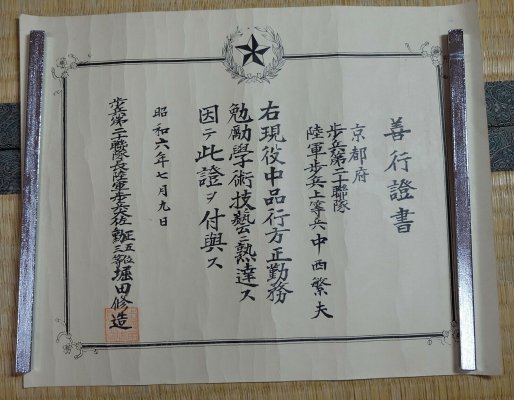 善行證書
京都府
歩兵第二十聯隊
陸軍歩兵上等兵 中西繁夫
右現役中品行方正勤務
勉勵學術技藝ニ熟達ス
因テ此證ヲ付與ス
昭和六年七月九日
歩兵第二十聯隊長陸軍歩兵大佐 正五位勲三等 堀田修造